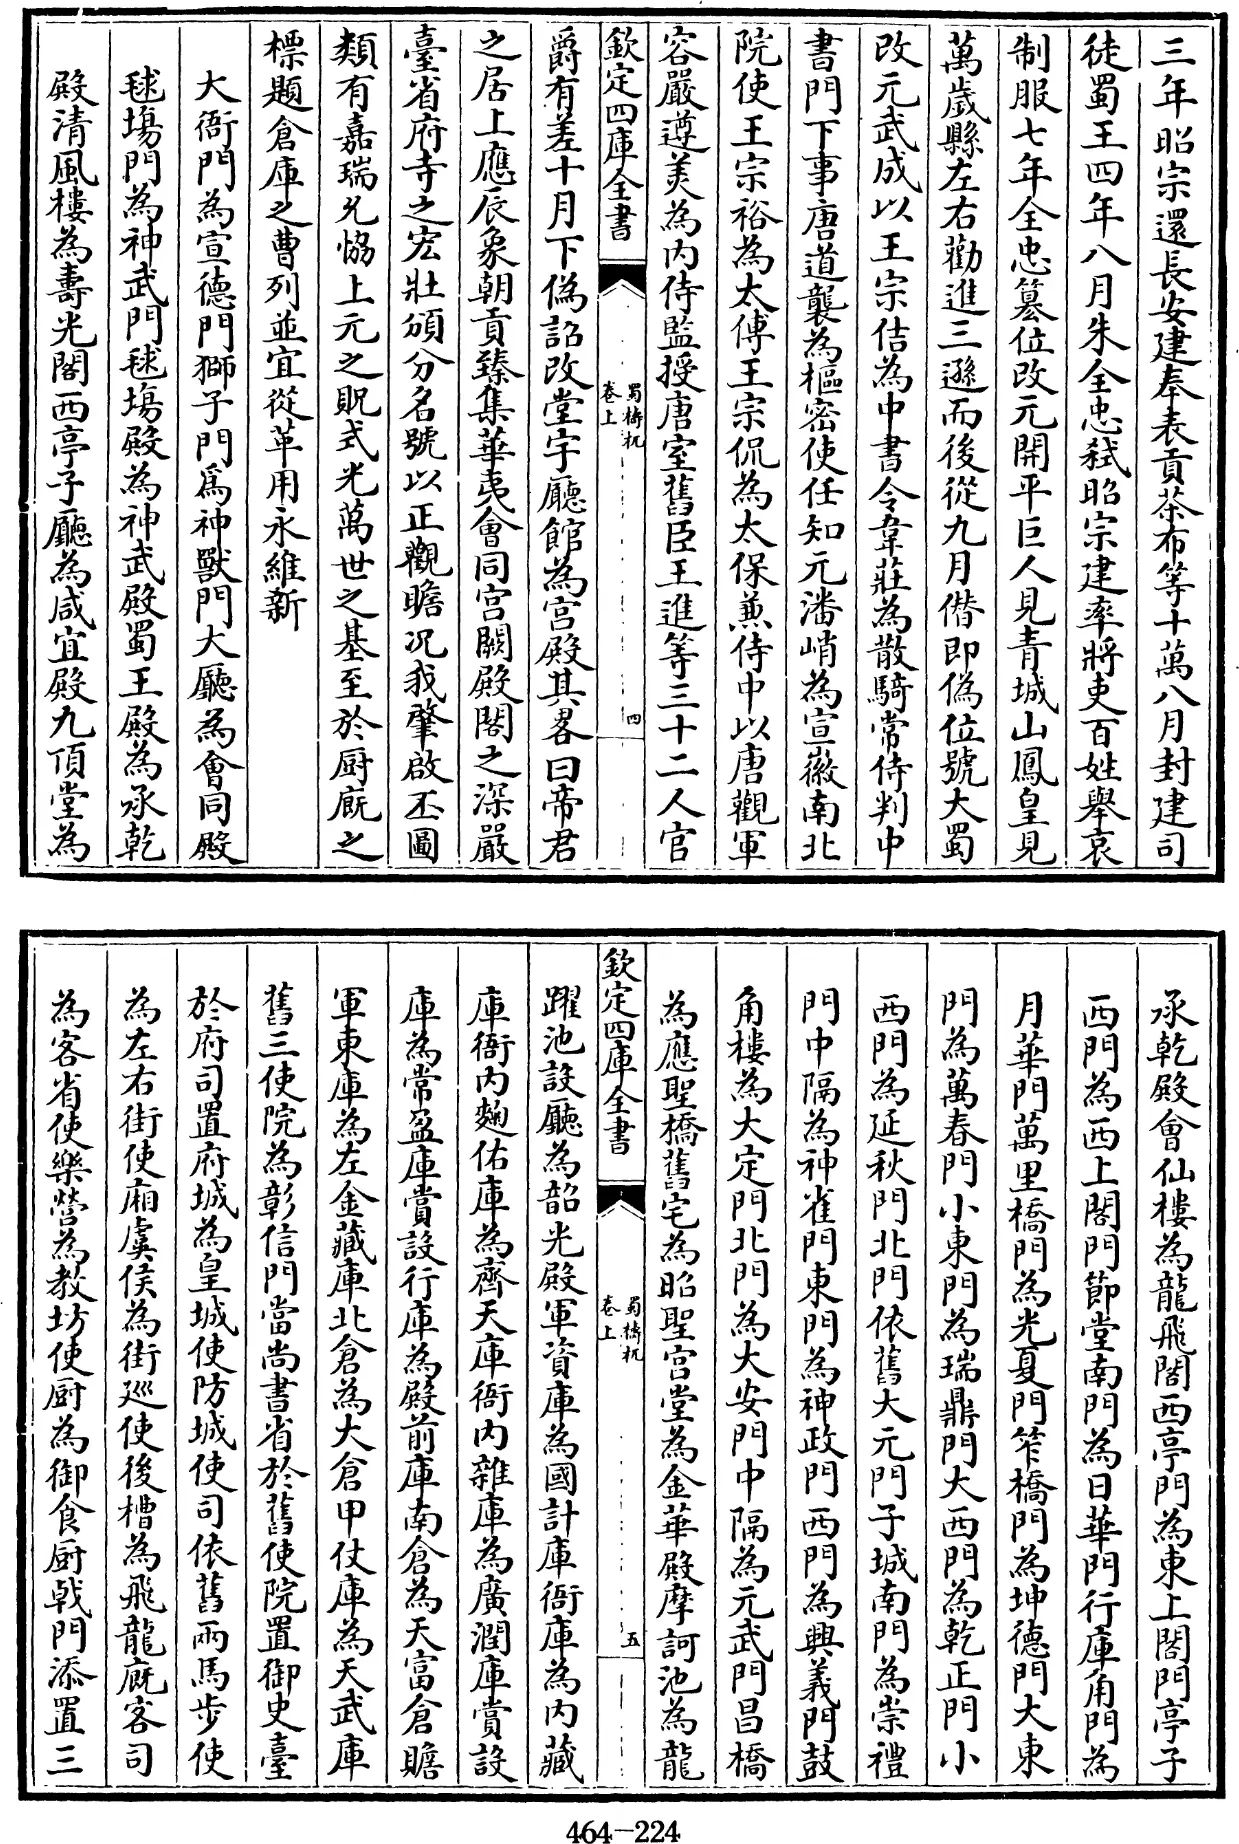 三年昭宗還長安建奉表貢茶布等十萬八月封建司
徒蜀王四年八月朱全忠弒昭宗建率將吏百姓舉哀
制服七年全忠簒位改元開平巨人見青城山鳳皇見
萬歲縣左右勸進三遜而後從九月僭即偽位號大蜀
改元武成以王宗佶為中書令韋莊為散騎常侍判中
書門下事唐道襲為樞密使任知元潘峭為宣徽南北
院使王宗裕為太傅王宗侃為太保兼侍中以唐觀軍
容嚴遵美為内侍監授唐室舊臣王進等三十二人官
欽定四庫全書
蜀檮杌
卷上
四
爵有差十月下偽詔改堂宇廳館為宮殿其畧曰帝君
之居上應辰象朝貢臻集華夷會同宮闕殿閣之深嚴
臺省府寺之宏壯頒分名號以正觀瞻况我肇啟丕圖
類有嘉瑞允恊上元之貺式光萬世之基至於厨厩之
標題倉庫之曹列並宜從革用永維新
大衙門為宣德門獅子門爲神獸門大廳為會同殿
毬塲門為神武門毬塲殿為神武殿蜀王殿為承乾
殿清風樓為壽光閣西亭子廳為咸宜殿九頂堂為
承乾殿會仙樓為龍飛閣西亭門為東上閤門亭子
西門為西上閤門節堂南門為日華門行庫角門為
月華門萬里橋門為光夏門笮橋門為坤德門大東
門為萬春門小東門為瑞鼎門大西門為乾正門小
西門為延秋門北門依舊大元門子城南門為崇禮
門中隔為神雀門東門為神政門西門為興義門鼓
角樓為大定門北門為大安門中隔為元武門昌橋
為應聖橋舊宅為昭聖宮堂為金華殿摩訶池為龍
欽定四庫全書
蜀檮杌
卷上
五
躍池設廳為韶光殿軍資庫為國計庫衙庫為内藏
庫衙内麴佑庫為齊天庫衙内雜庫為廣潤庫賞設
庫為常盈庫賞設行庫為殿前庫南倉為天富倉贍
軍東庫為左金藏庫北倉為大倉甲仗庫為天武庫
舊三使院為彰信門當尚書省於舊使院置御史臺
於府司置府城為皇城使防城使司依舊兩馬步使
為左右街使廂虞侯為街廵使後槽為飛龍厩客司
為客省使樂營為教坊使厨為御食厨㦸門添置三
464-224